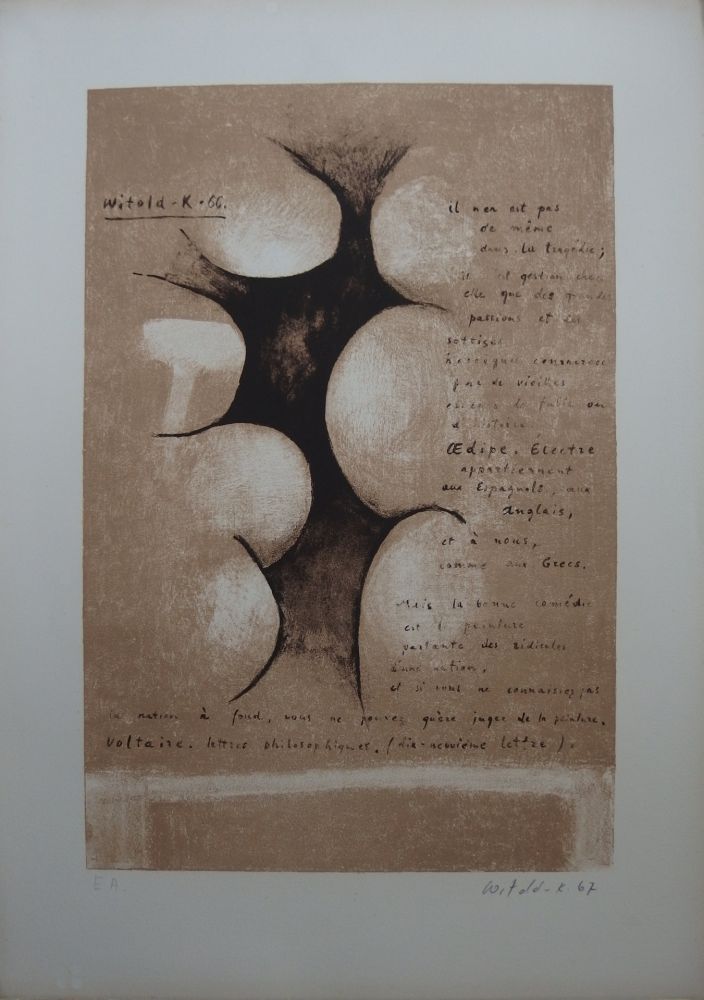 Witold-K.66.
il n'en est pas
de même
dans la tragédie;
elle que des grandes
passions et des
sottises
par de vieilles
de fable ou
d'histoire
Œdipe, Électre
appartiennent
aux Espagnols, aux
Anglais,
et à nous,
comme aux Grecs.
Mais la bonne comédie
est la peinture
parlante des ridicules
d'une nation,
et si vous ne connaissez pas
la nation à fond, vous ne pouvez guère juger de la peinture.
Voltaire. lettres philosophiques. (dix-neuvième lettre).
E.A.
Witold-K.67